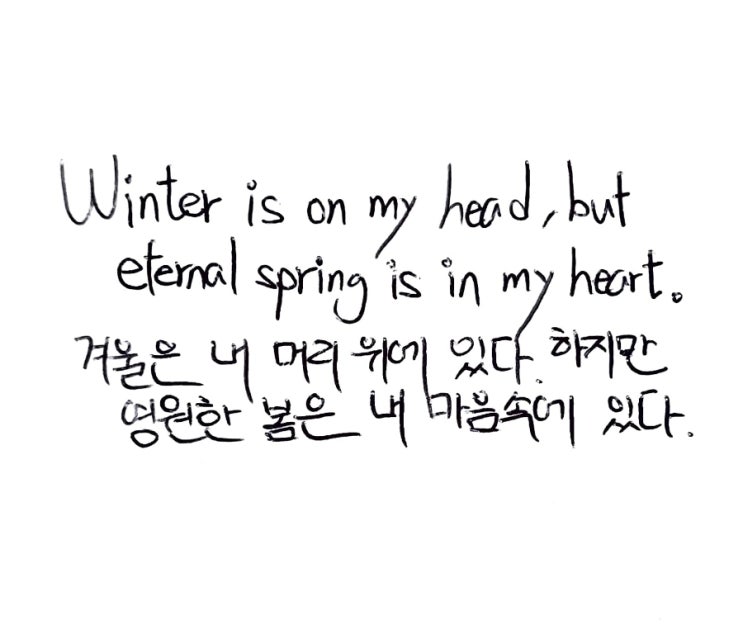 Winter is on my head, but
eternal spring is in my heart.
겨울은 내 머리 위에 있다. 하지만
영원한 봄은 내 마음속에 있다.